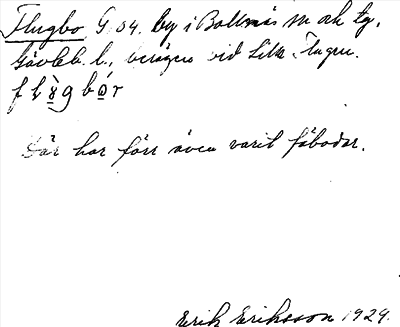 Flugbo G 54. by i Bollnäs sn ok tg.
Gävleb. l., belägen vid Lilla Flugen.
Där har förr även varit fäbodar.
Erik Eriksson 1929.